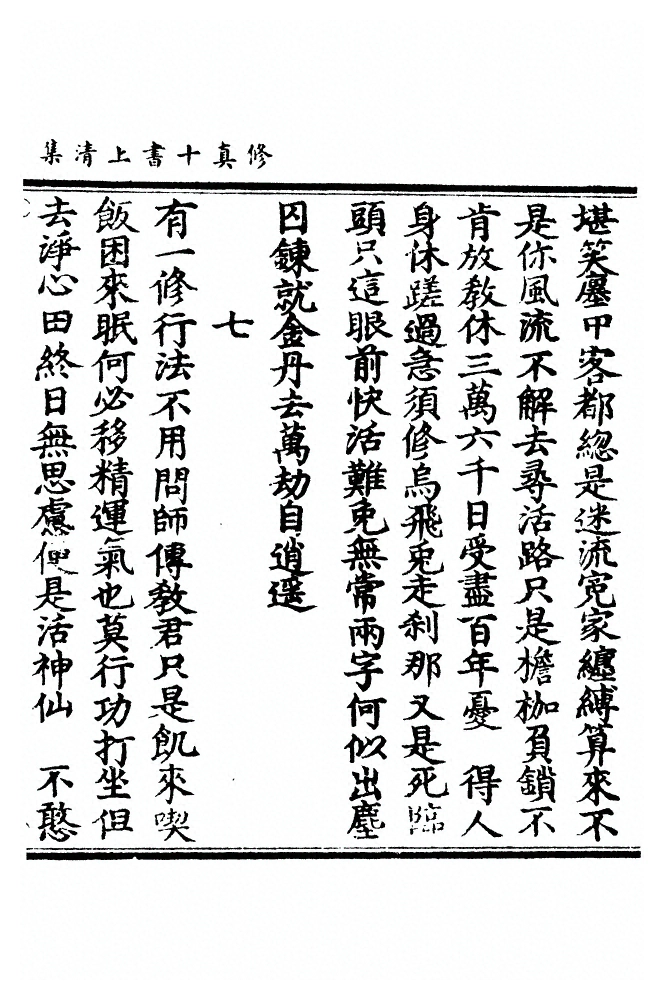 修真十書上清集
堪笑廛中客都緫是迷流寃家纏縛算來不
是你風流不解去尋活路只是檐枷負鎖不
肯放教休三萬六千日受盡百年憂　得人
身休蹉過急須修烏飛兎走刹那又是死臨
頭只這眼前快活難免無常兩字何似出塵
囚鍊就金丹去萬劫自逍遥
七
有一修行法不用問師傳教君只是飢來喫
飯困來眠何必移精運氣也莫行功打坐但
去淨心田終日無思慮便是活神仙　不憨